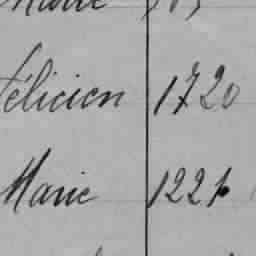 Félicien 1720
Marie 1221